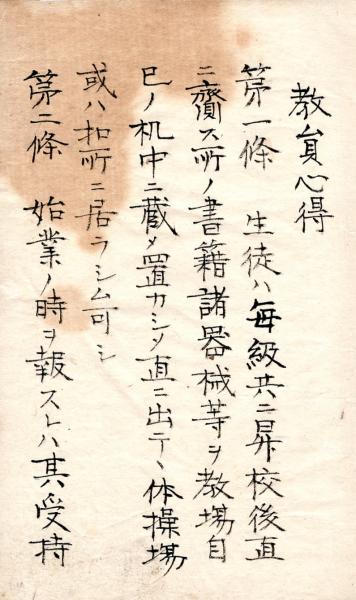 教員心得
第一條　生徒ハ毎級共ニ昇校後直
ニ齎ス所ノ書籍諸器械等ヲ教場自
已ノ机中ニ蔵メ置カシメ直ニ出テヽ体操場
或ハ扣所ニ居ラシム可シ
第二條　始業ノ時ヲ報スレハ其受持